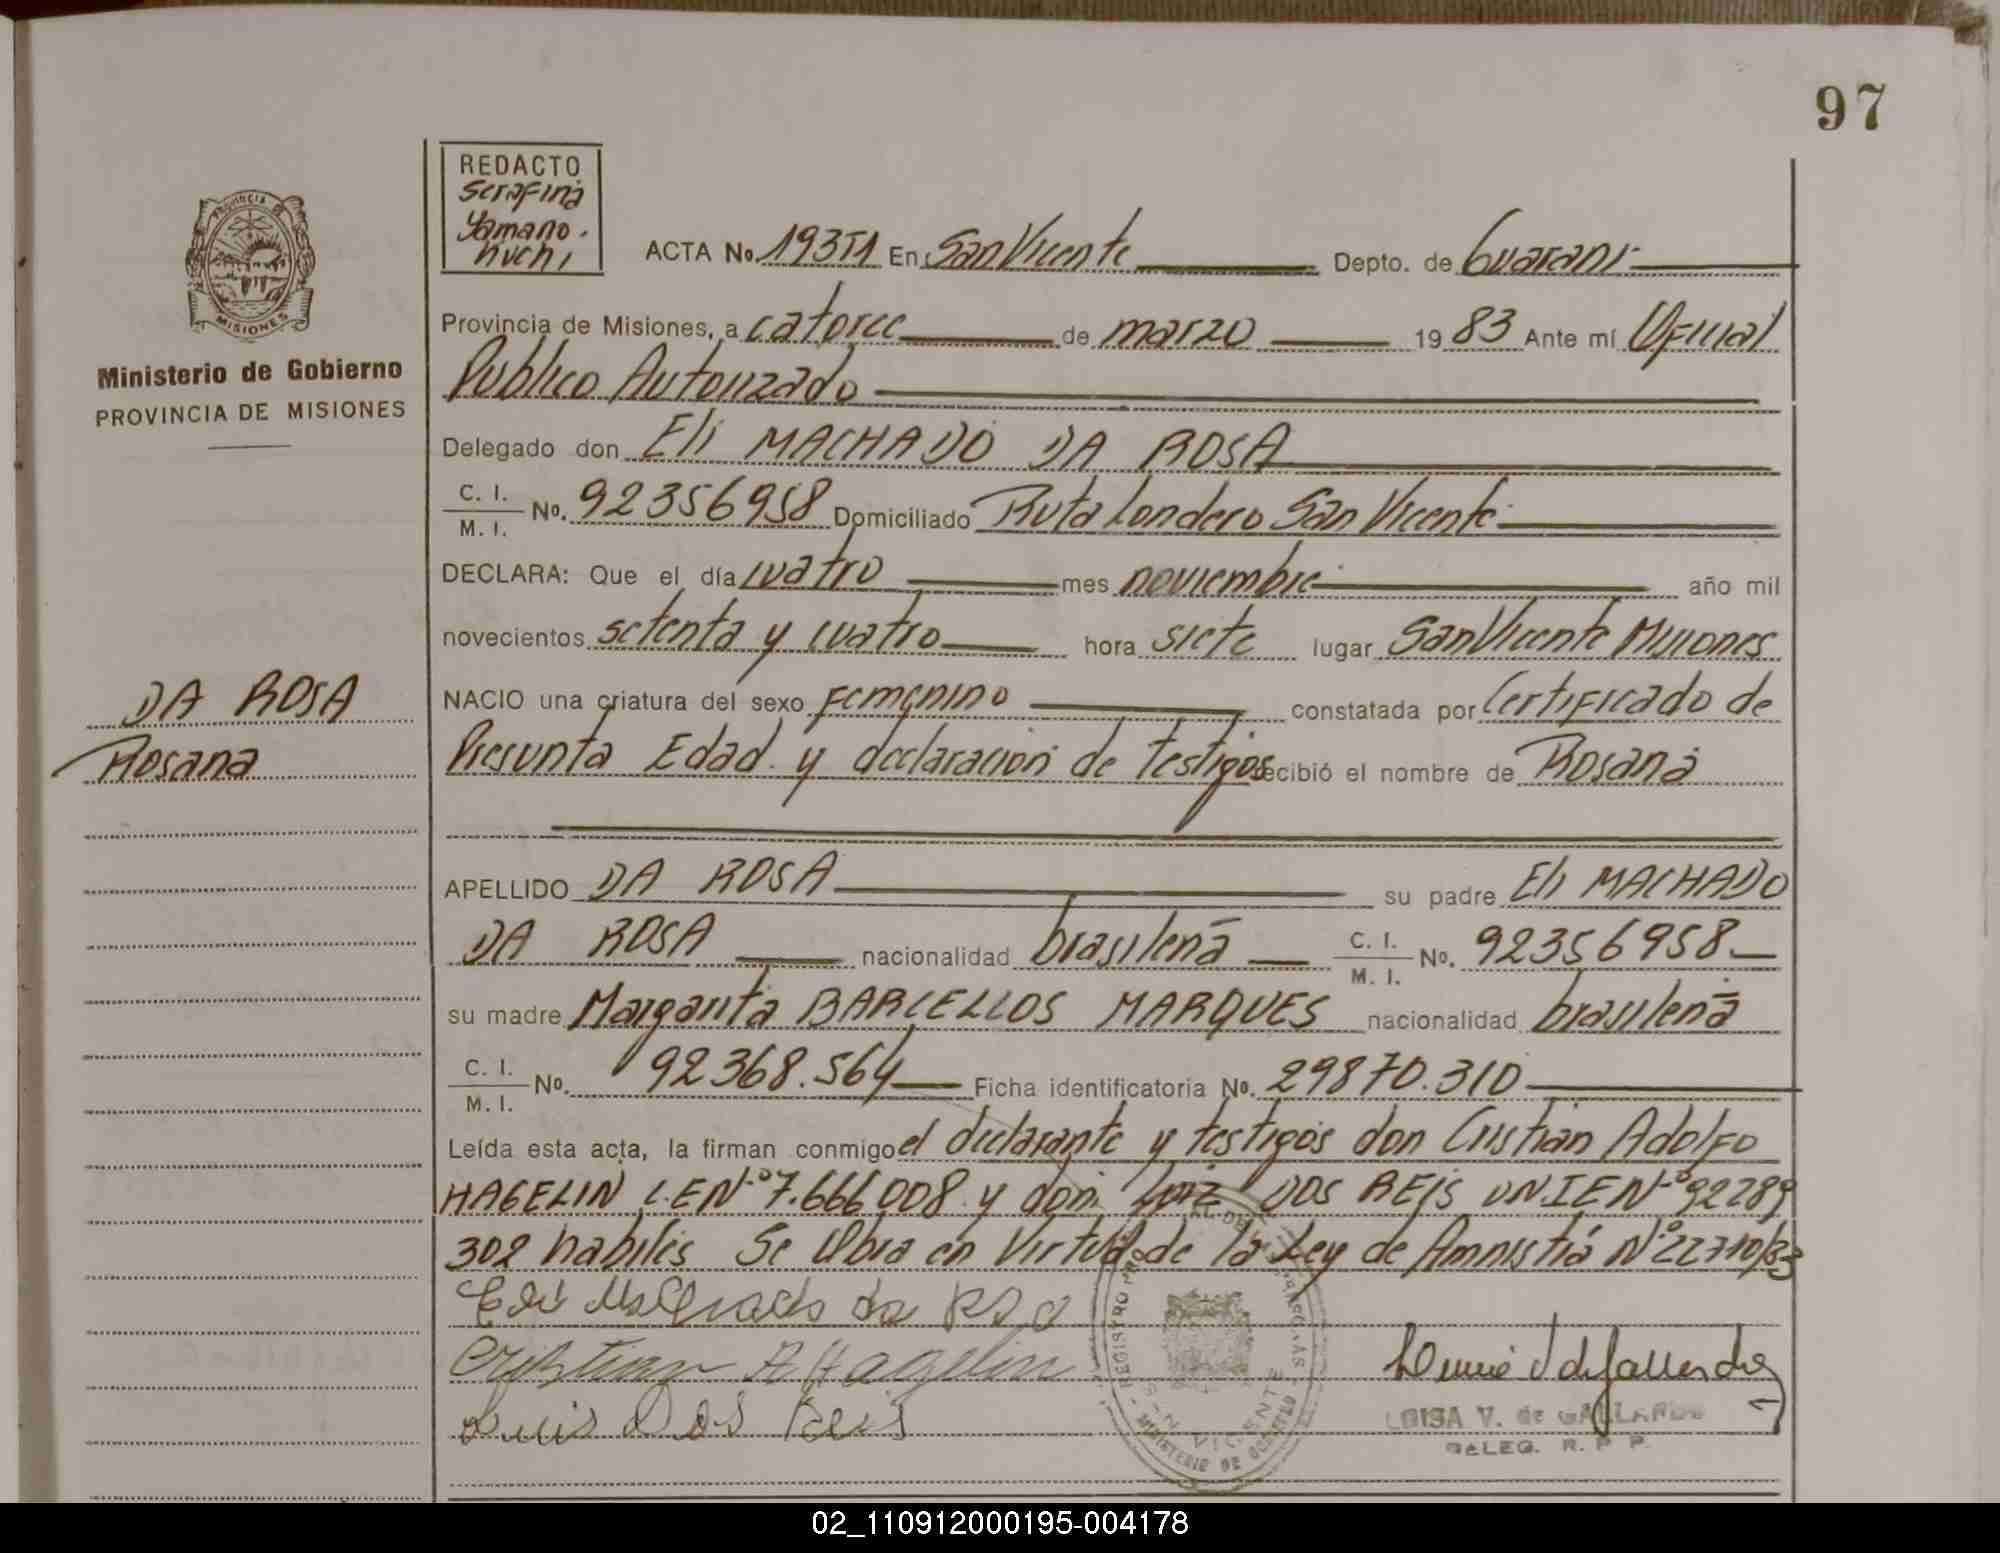 97
REDACTO
Serafina
Yamano.
nuchi
PROVINCIA DE
MISIONES
Ministerio de Gobierno
PROVINCIA DE MISIONES
ACTA No. 19351 En San Vicente Depto. de Guaraní
Provincia de Misiones, a catorce de marzo 1983 Ante mí Oficial
Publico Autorizado
Delegado don Eli MACHADO DA ROSA
C. I.
M. I. No. 92356958 Domiciliado Ruta Londero San Vicente
DECLARA: Que el día cuatro mes noviembre año mil
novecientos setenta y cuatro hora siete lugar San Vicente Misiones
NACIO una criatura del sexo Femenino constatada por Certificado de
Presunta Edad y declaración de testigos recibió el nombre de Rosana
DA ROSA
Rosana
APELLIDO DA ROSA su padre Eli MACHADO
DA ROSA nacionalidad brasileña C. I.
M. I. No. 92356958
su madre Margarita BARCELLOS MARQUES nacionalidad brasileña
C. I.
M. I. No. 92368.564 Ficha identificatoria No. 29870.310
Leída esta acta, la firman conmigo el declarante y testigos don Cristian Adolfo
HAGELIN L.E N.º 7.666.008 y don DOS REIS DNIE Nº 92289
302 habiles Se Obra en Virtud de la Ley de Amnistia Nº 22710/83
Eli Machado da Rosa
Cristian A Hagelin
Luis Dos Reis
S-N VICENTE
LUISA V. de GALLARDO
DELEG. R. P. P.
02_110912000195-004178